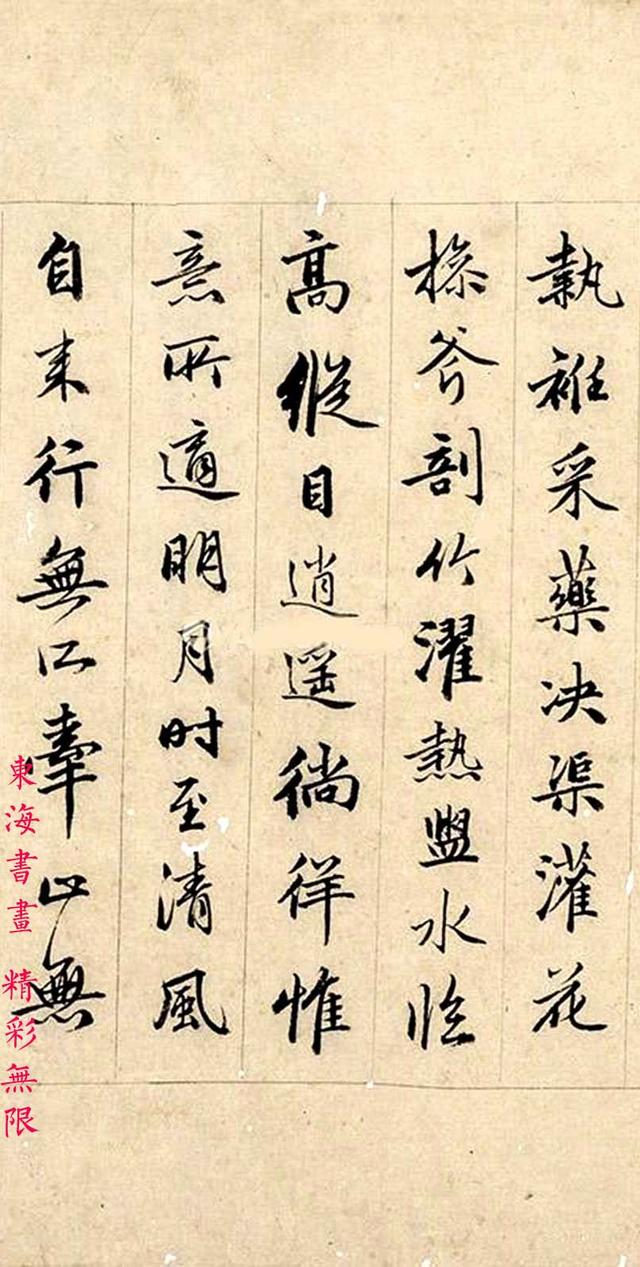 執衽采藥决渠灌花
操斧剖竹濯熱盥水臨
高縱目逍遥徜徉惟
意所適明月时至清風
自来行無所牽止無
東海書畫 精彩無限